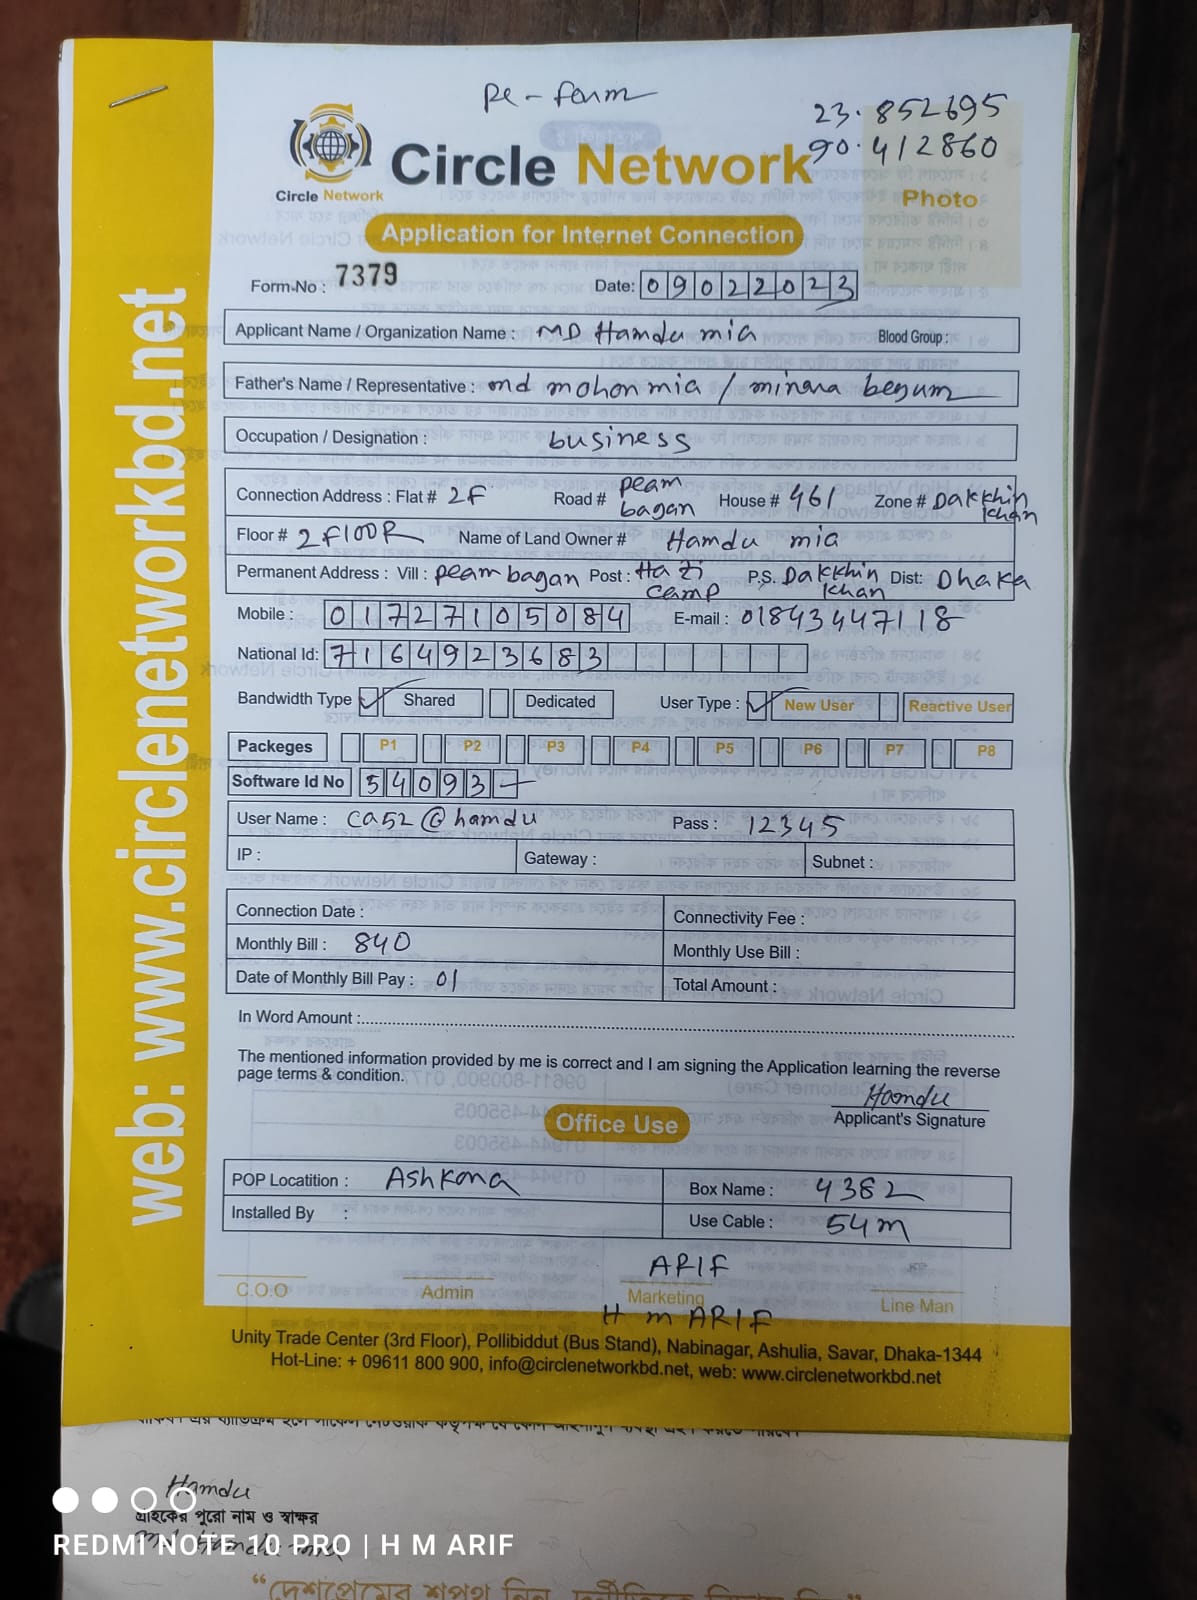 Re-form
23.852695
90.412860
Circle Network
Circle Network
Photo
Application for Internet Connection
Form-No : 7379
Date: 09022023
Applicant Name / Organization Name : MD Hamdu mia Blood Group :
Father's Name / Representative : md mohon mia / minara begum
Occupation / Designation : business
Connection Address : Flat # 2F Road # peam bagan House # 461 Zone # Dakkhin khan
Floor # 2 FlOOR Name of Land Owner # Hamdu mia
Permanent Address : Vill : peam bagan Post : Hazi camp P.S. Dakkhin khan Dist: Dhaka
Mobile : 01727105084 E-mail : 01843447118
National Id: 7164923683
Bandwidth Type Shared Dedicated User Type : New User Reactive User
Packeges P1 P2 P3 P4 P5 P6 P7 P8
Software Id No 54093
User Name : ca52@hamdu Pass : 12345
IP : Gateway : Subnet :
Connection Date : Connectivity Fee :
Monthly Bill : 840 Monthly Use Bill :
Date of Monthly Bill Pay : 01 Total Amount :
In Word Amount :
The mentioned information provided by me is correct and I am signing the Application learning the reverse
page terms & condition.
Hamdu
Applicant's Signature
Office Use
POP Locatition : Ashkona Box Name : 4382
Installed By : Use Cable : 54m
ARIF
C.O.O Admin Marketing Line Man
H m ARIF
Unity Trade Center (3rd Floor), Pollibiddut (Bus Stand), Nabinagar, Ashulia, Savar, Dhaka-1344
Hot-Line: + 09611 800 900, info@circlenetworkbd.net, web: www.circlenetworkbd.net
web: www.circlenetworkbd.net
Hamdu
গ্রাহকের পুরো নাম ও স্বাক্ষর
REDMI NOTE 10 PRO | H M ARIF